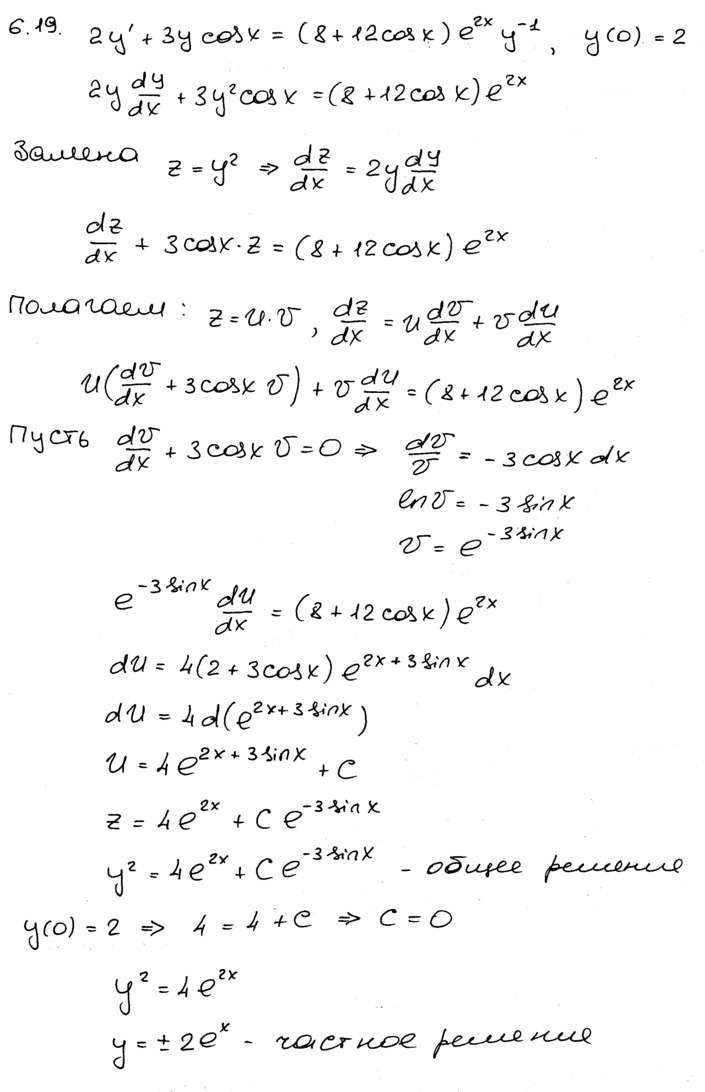 6.19. 2y' + 3y cos x = (8 + 12 cos x) e^{2x} y^{-1}, y(0) = 2
2y dy/dx + 3y² cos x = (8 + 12 cos x) e^{2x}
Замена z = y² ⇒ dz/dx = 2y dy/dx
dz/dx + 3 cos x · z = (8 + 12 cos x) e^{2x}
Полагаем: z = u · v, dz/dx = u dv/dx + v du/dx
u(dv/dx + 3 cos x v) + v du/dx = (8 + 12 cos x) e^{2x}
Пусть dv/dx + 3 cos x v = 0 ⇒ dv/v = -3 cos x dx
ln v = -3 sin x
v = e^{-3 sin x}
e^{-3 sin x} du/dx = (8 + 12 cos x) e^{2x}
du = 4(2 + 3 cos x) e^{2x + 3 sin x} dx
du = 4d(e^{2x + 3 sin x})
u = 4e^{2x + 3 sin x} + C
z = 4e^{2x} + C e^{-3 sin x}
y² = 4e^{2x} + C e^{-3 sin x} - общее решение
y(0) = 2 ⇒ 4 = 4 + C ⇒ C = 0
y² = 4e^{2x}
y = ± 2e^x - частное решение